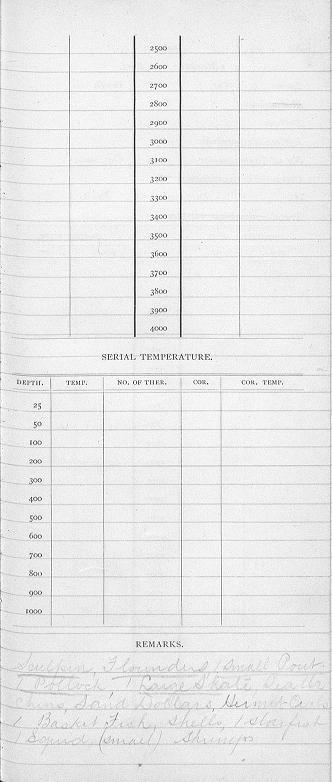 2500
2600
2700
2800
2900
3000
3100
3200
3300
3400
3500
3600
3700
3800
3900
4000
SERIAL TEMPERATURE.
DEPTH. TEMP. NO. OF THER. COR. COR. TEMP.
25
50
100
200
300
400
500
600
700
800
900
1000
REMARKS.
Sculpin, Flounders, 1 small Pout
1 Pollock 1 Large Skate,
Sand Dollars, Hermit Crabs
1 Basket Fish, Shells, 1 starfish
1 Squid (small) Shrimps